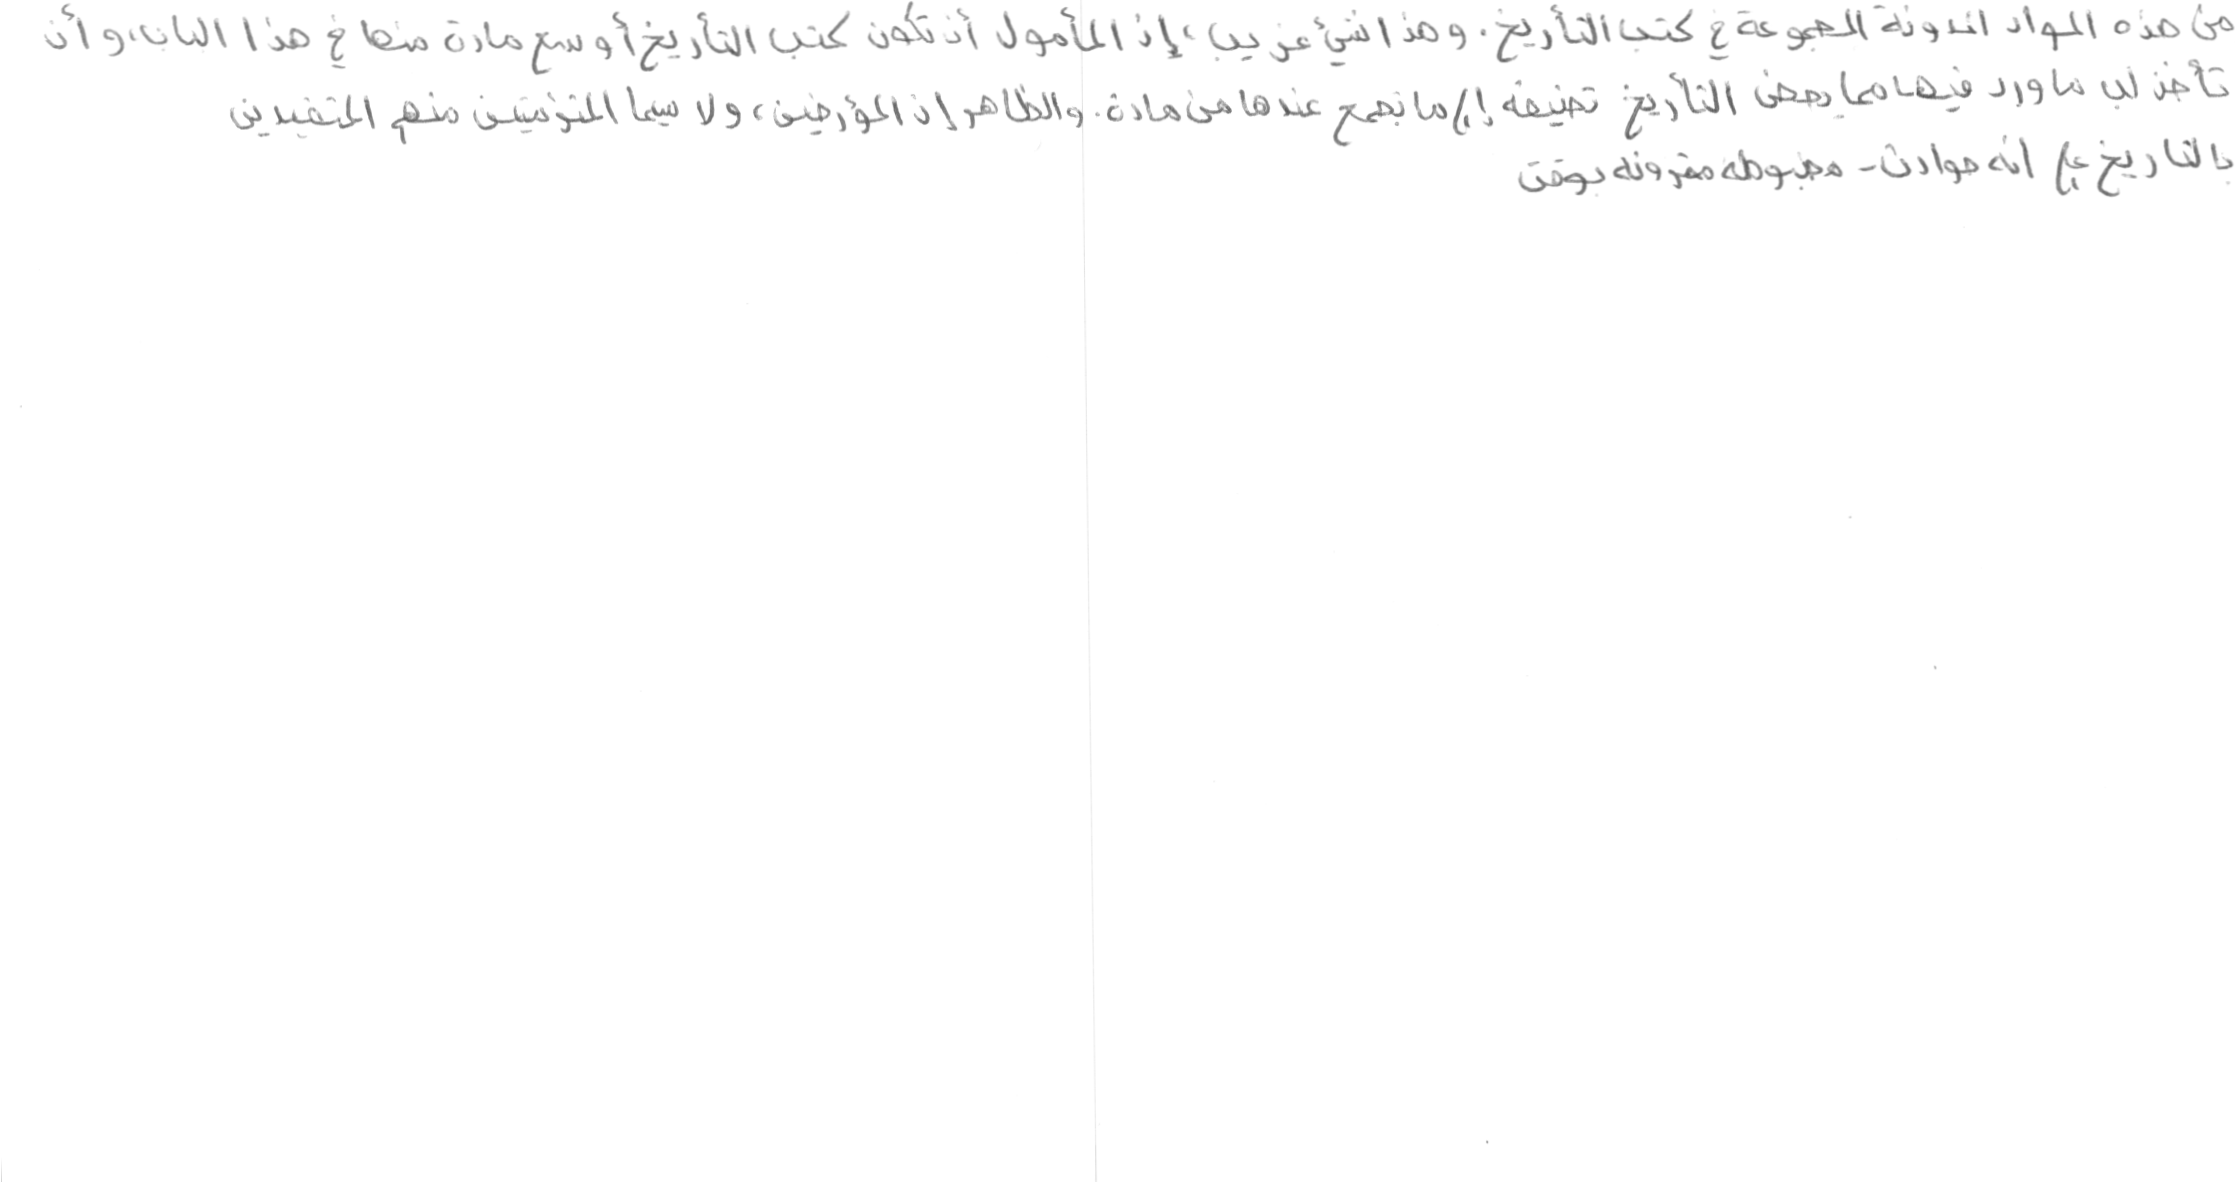 من هذه المواد المدونة المجموعة في كتب التأريخ. وهذا شيء غريب، إذ المأمول أن تكون كتب التأريخ أوسع مادة منها في هذا الباب، وأن
تأخذ لب ما ورد فيها مما يخص التأريخ تضيفه إلى ما تجمع عندها من مادة. والظاهر إن المؤرخين، ولا سيما المتزمتين منهم المتقيدين
بالتاريخ على انه حوادث مضبوطه مقرونه بوقت